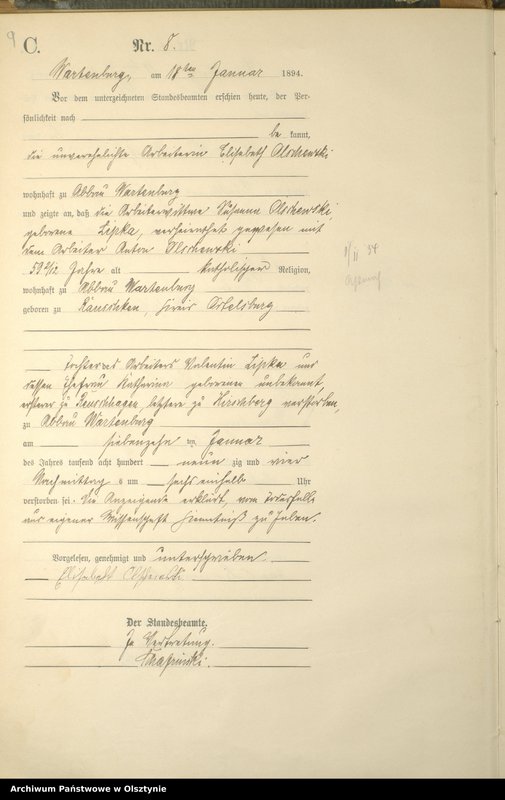 9
C.
Nr. 8.
Wartenburg, am 18ten Januar 1894.
Vor dem unterzeichneten Standesbeamten erschien heute, der Per-
sönlichkeit nach
be kannt,
die unverehelichte Arbeiterin Elisabeth Olschewski
wohnhaft zu Abbau Wartenburg
und zeigte an, daß die Arbeiterwittwe Susanna Olschewski,
geborene Lipka, verheirathet gewesen mit
dem Arbeiter Anton Olschewski
Jahre alt katholischer Religion,
wohnhaft zu Abbau Wartenburg
geboren zu Kreis Ortelsburg
Tochter des Arbeiters Valentin Lipka und
dessen Ehefrau Katharina geborenen unbekannt,
ersterer zu letztere zu Hirschberg verstorben,
zu Abbau Wartenburg
am siebenzehn ten Januar
des Jahres tausend acht hundert neun zig und vier
Nachmittag s um sechs einhalb Uhr
verstorben sei. Die Anzeigende erklärt, vom Todesfalle
aus eigener Wissenschaft Kenntniß zu haben.
Vorgelesen, genehmigt und unterschrieben
Elisabeth Olschewski
Der Standesbeamte.
In Vertretung.
Archiwum Państwowe w Olsztynie